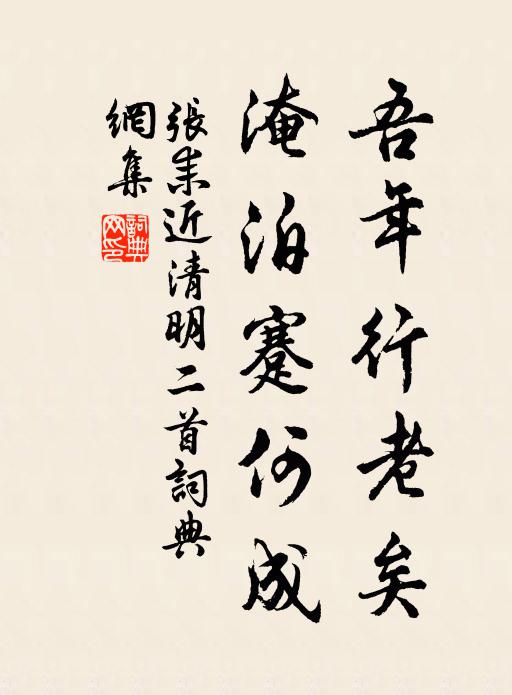 吾年行老矣
淹泊蹇何成
張耒近清明二首詞典
網集
詞典網印